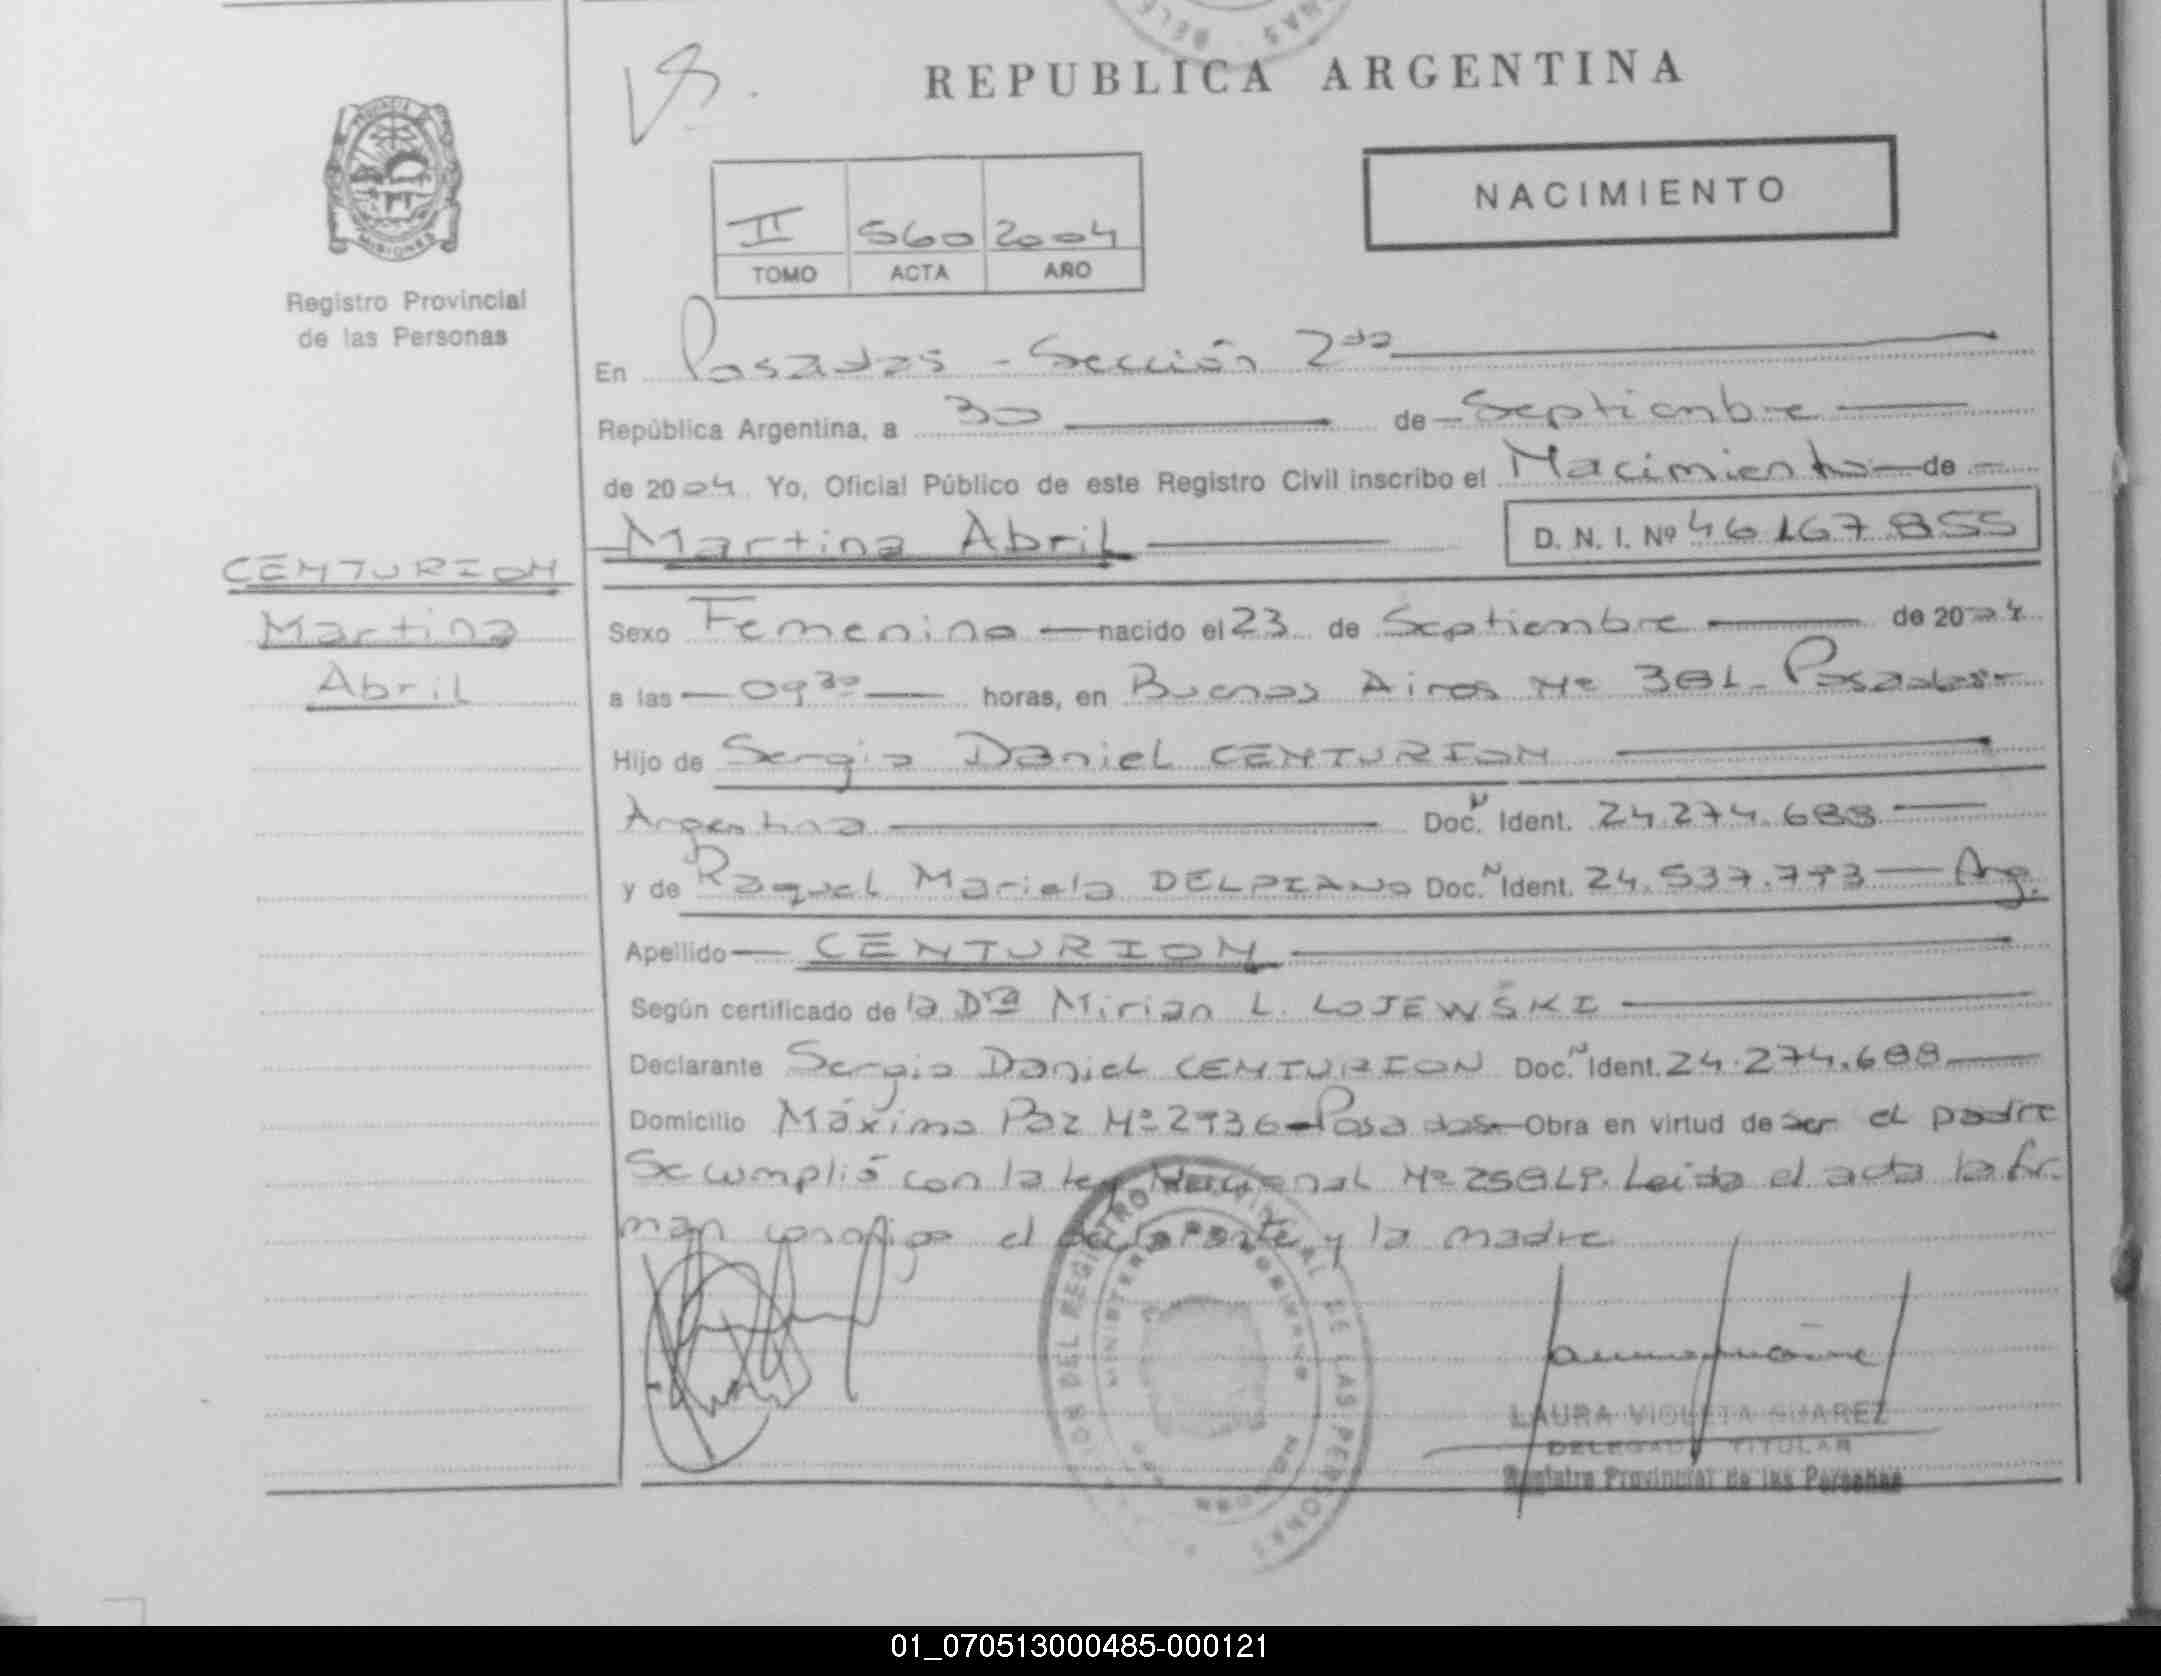 REPUBLICA ARGENTINA
NACIMIENTO
II 560 2004
TOMO ACTA AÑO
MISIONES
Registro Provincial
de las Personas
En Posadas - Sección 2da
República Argentina, a 30 de Septiembre
de 2004. Yo, Oficial Público de este Registro Civil inscribo el Nacimiento de
Martina Abril D. N. I. Nº 46167.855
CENTURION
Martina
Abril
Sexo Femenino nacido el 23 de Septiembre de 2004
a las 09 30 horas, en Buenos Aires Nº 381 - Posadas
Hijo de Sergio Daniel CENTURION
Argentina Doc. N Ident. 24.274.688
y de Raquel Mariela DELPIANO Doc. N Ident. 24.537.773 Arg.
Apellido CENTURION
Según certificado de la Dra Mirian L. LOJEWSKI
Declarante Sergio Daniel CENTURION Doc. N Ident. 24.274.688
Domicilio Máximo Paz Nº 2736 - Posadas Obra en virtud de ser el padre
Se cumplió con la ley Nacional Nº 25819. Leida el acta la fir-
man conmigo el declarante y la madre
LAURA VIOLETA SUAREZ
DELEGADA TITULAR
Registro Provincial de las Personas
01_070513000485-000121